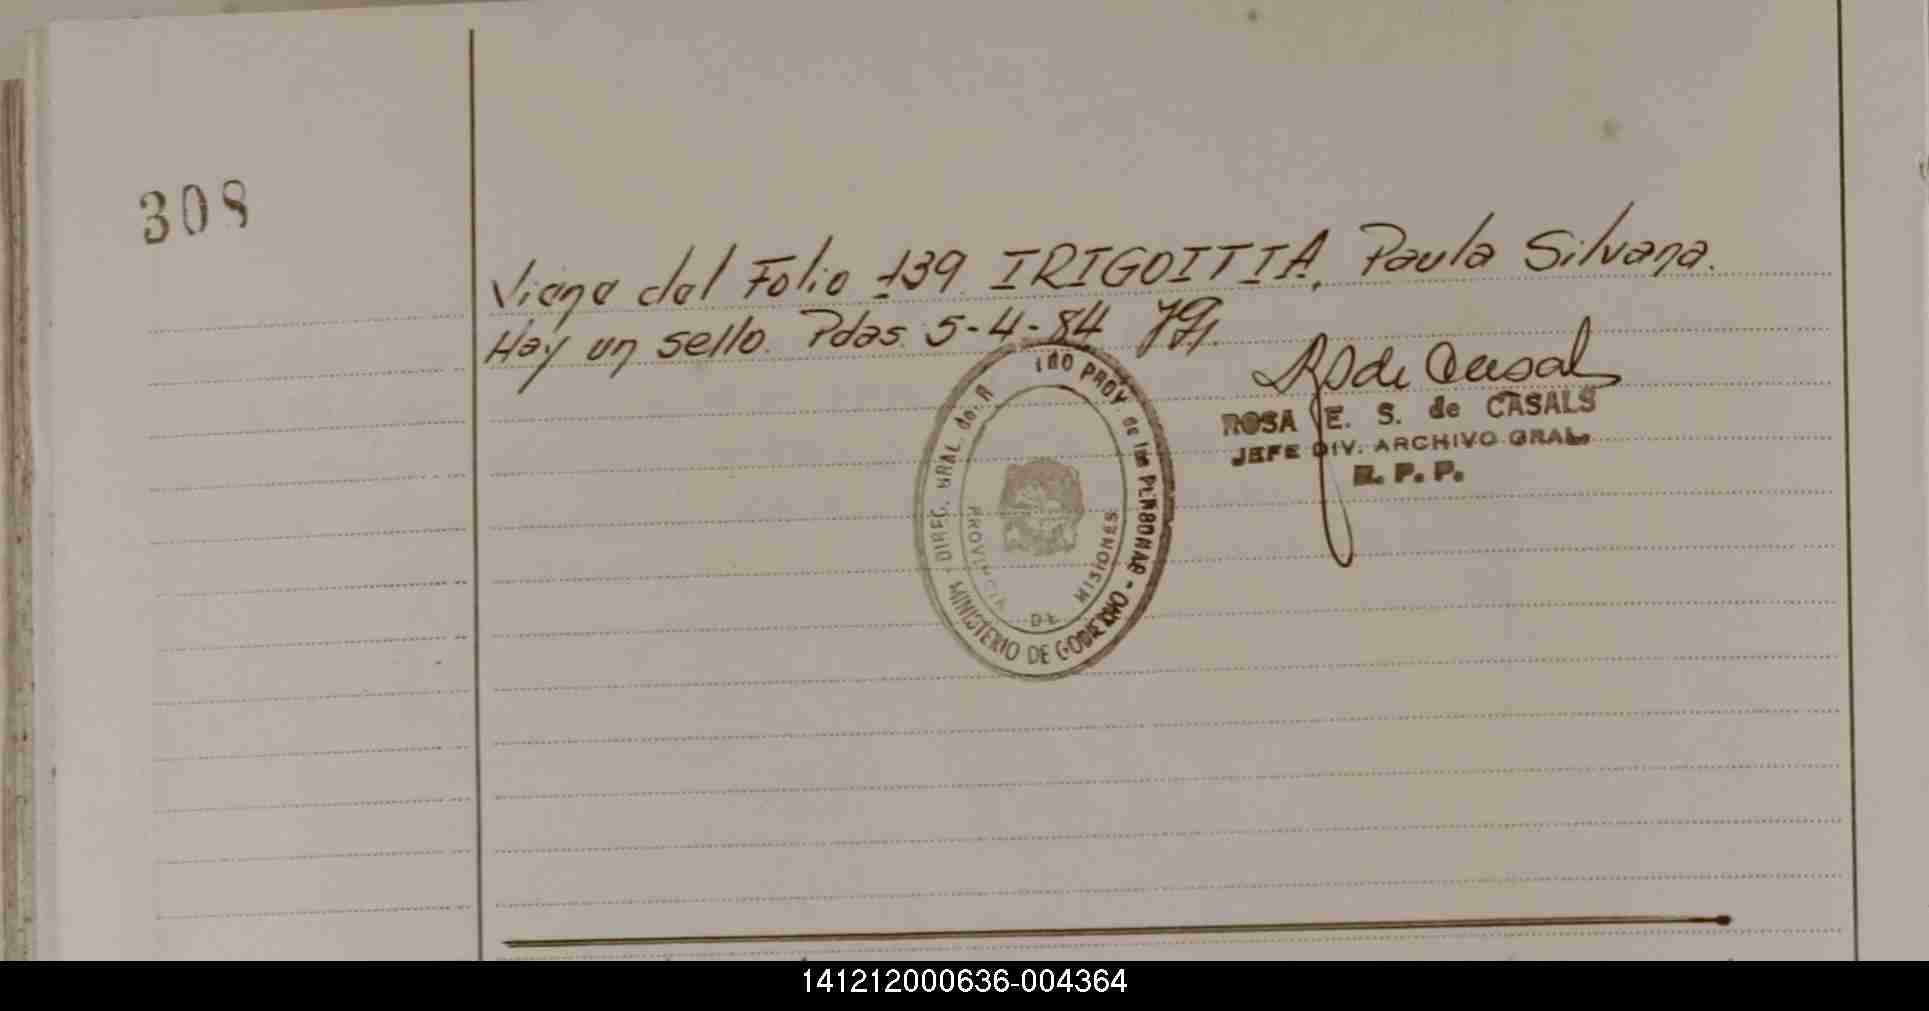 308
Viene del Folio 139. IRIGOITIA, Paula Silvana.
Hay un sello. Pdas. 5-4-84
R S de Casals
ROSA E. S. de CASALS
JEFE DIV. ARCHIVO GRAL.
R. P. P.
DIREC. GRAL. de. R TRO PROV. de las PERSONAS -
MINISTERIO DE GOBIERNO
PROVINCIA DE MISIONES
141212000636-004364